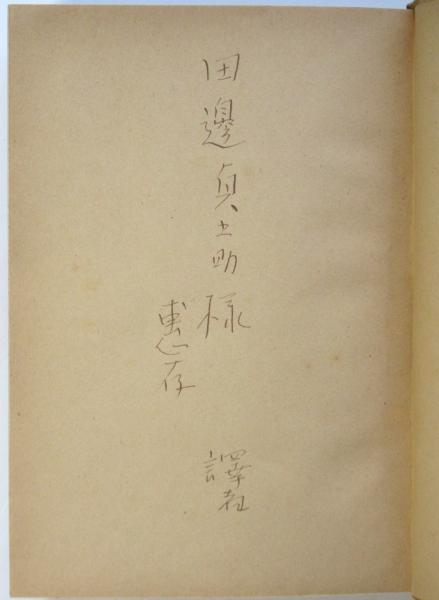 田邊貞之助様
恵存
譯者